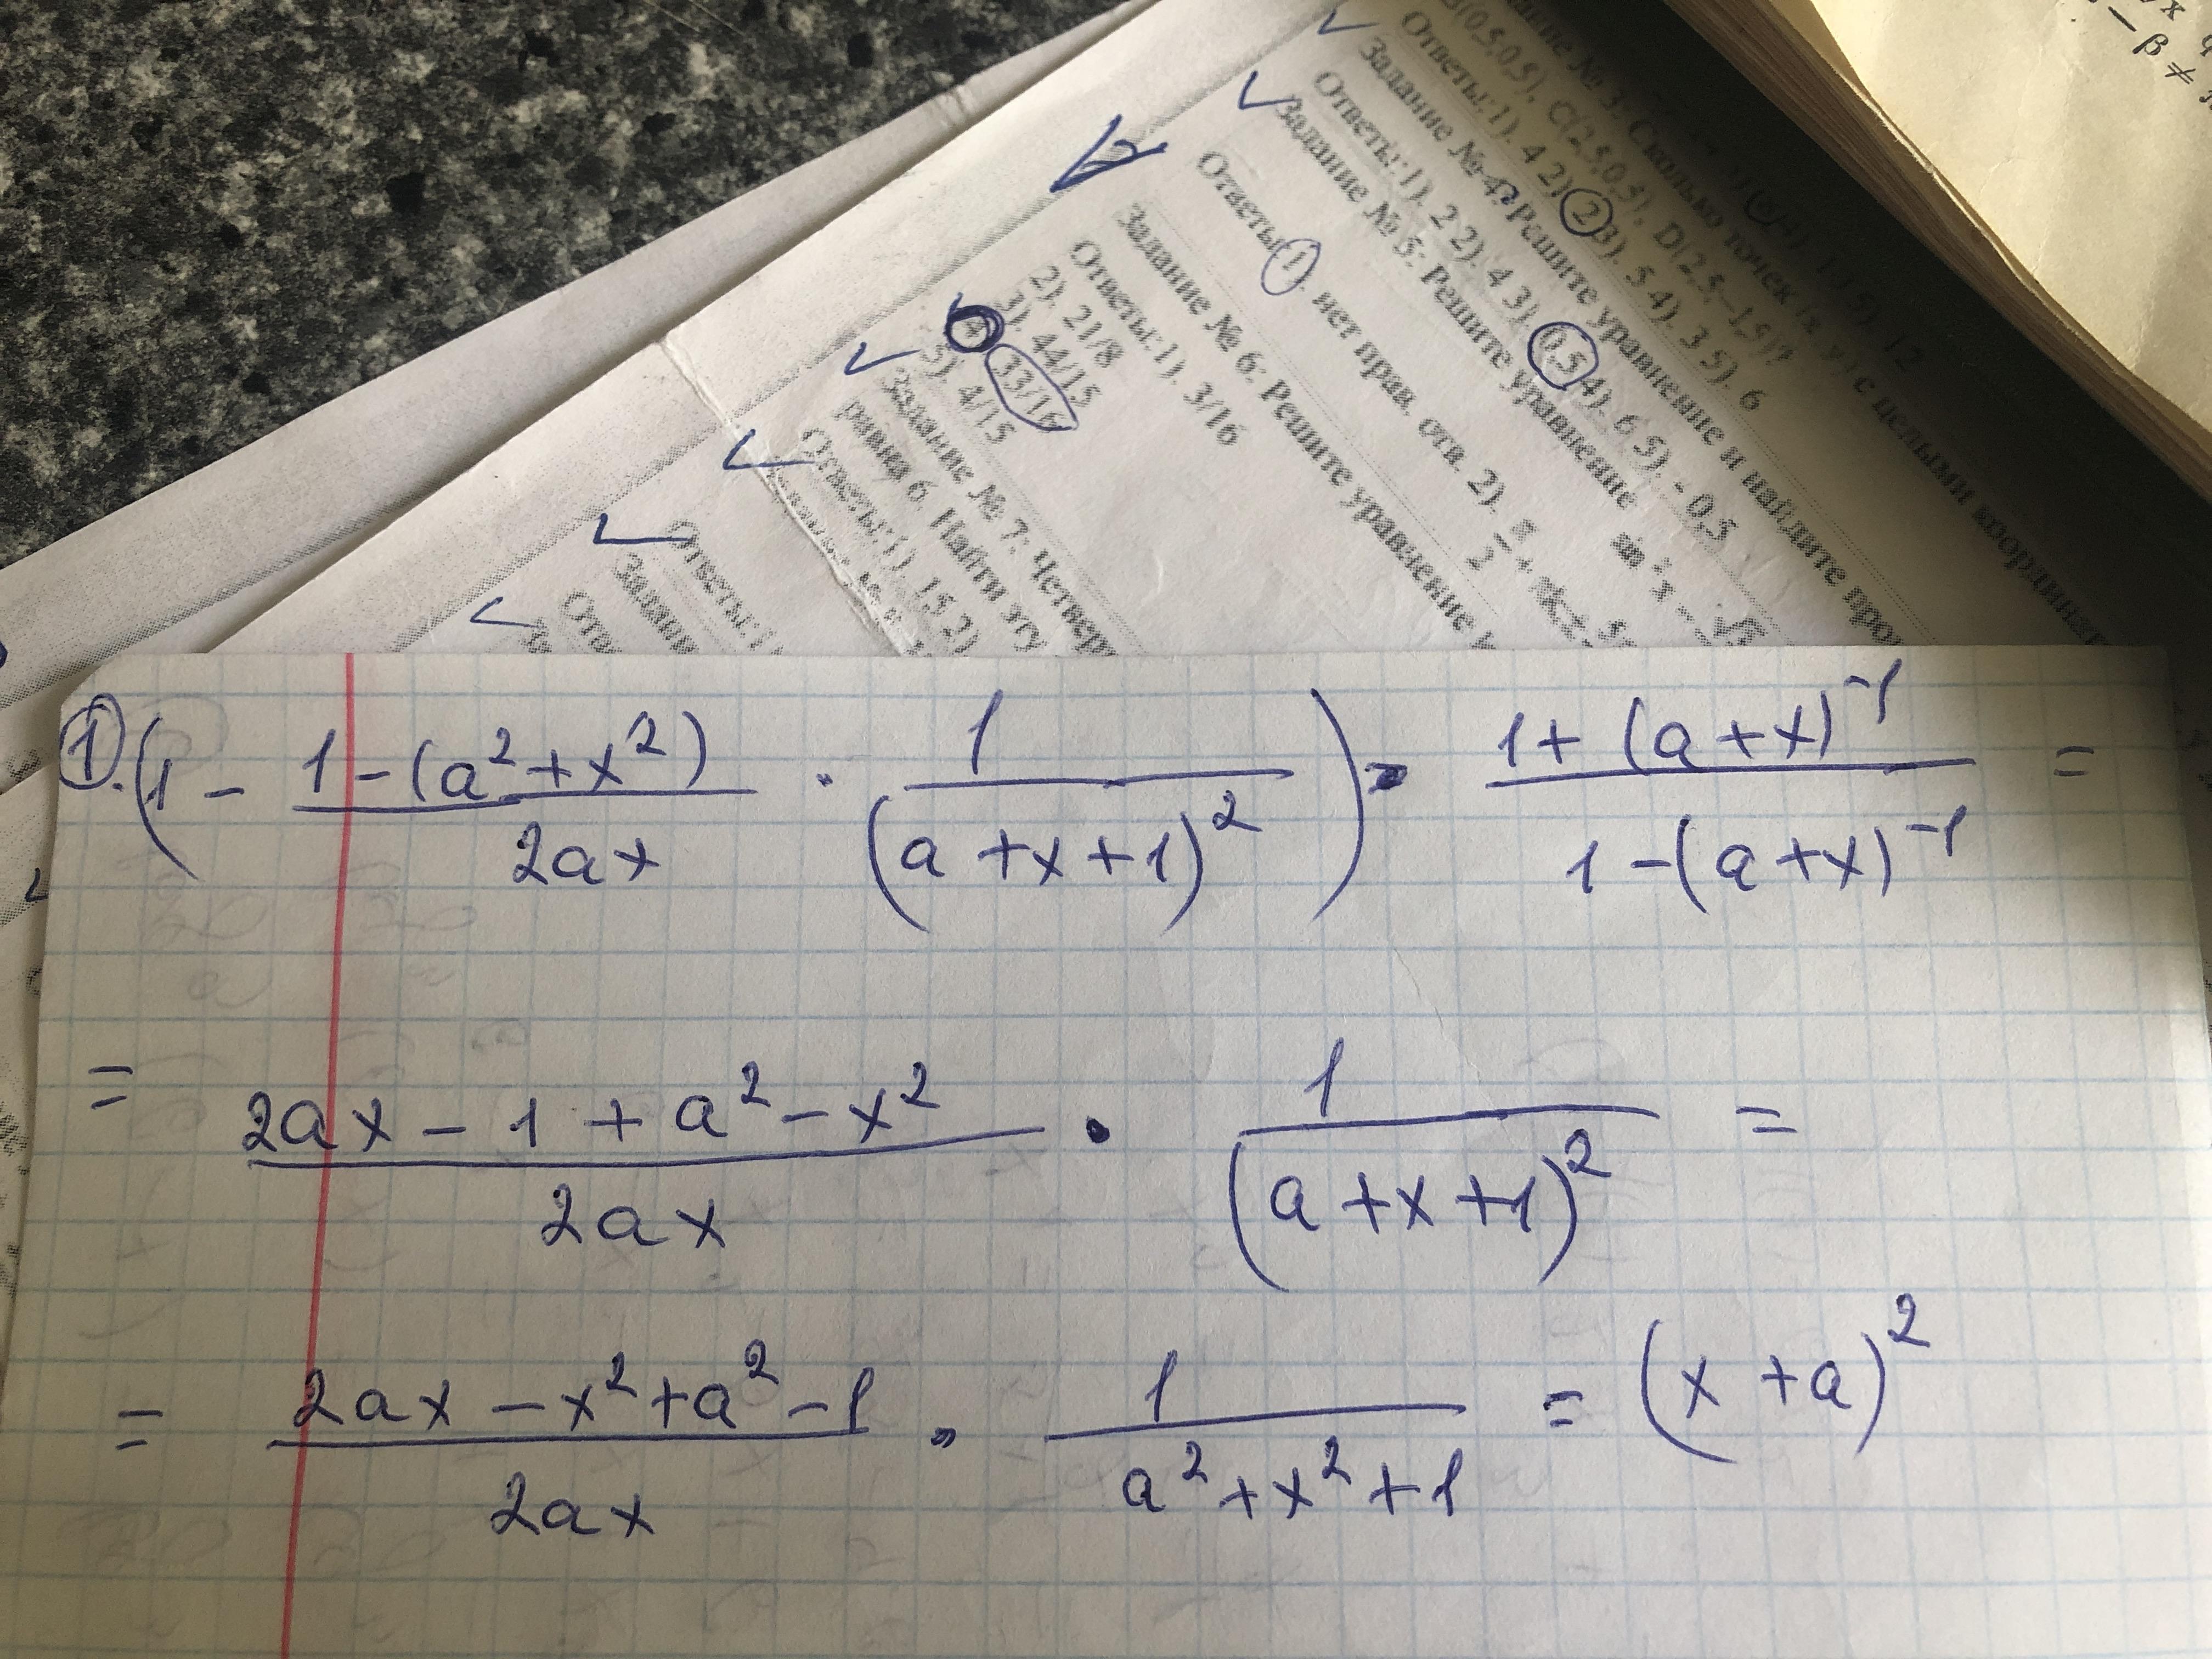 β ≠
Задание № 3: Сколько точек (x, y) с целыми
B(0,5;0,5), C(2,5;0,5), D(2,5;-1,5)?
Ответы:1). 4 2) 2 3). 5 4). 3 5). 6
Задание № 4: Решите уравнение и найдите
Ответы:1). 2 2). 4 3). 0,5 4). 6 5). - 0,5
Задание № 5: Решите уравнение
Ответы 1 нет прав. отв. 2).
Задание № 6: Решите уравнение
Ответы:1). 3/16
2). 21/8
3). 44/15
33/16
5). 4/15
Задание № 7: Четвер
равна 6. Найти эту
Ответы:1). 15 2)
Ответы:
Задани
①. (1 - (1-(a²+x²))/(2ax) · 1/(a+x+1)²) · (1+(a+x)⁻¹)/(1-(a+x)⁻¹) =
= (2ax - 1 + a² - x²)/(2ax) · 1/(a+x+1)² =
= (2ax - x² + a² - 1)/(2ax) · 1/(a²+x²+1) = (x+a)²